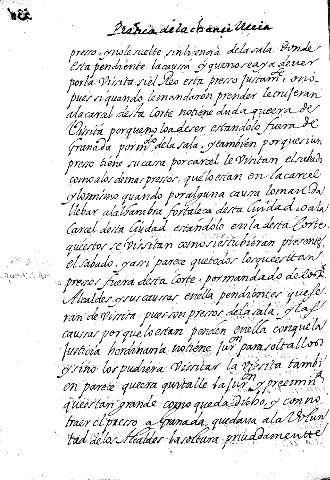 Pratica de la chançilleria
presso, y no le suelte sin liçençia de la sala donde
esta pendiente la causa y que no se aya de ver
por la Visita si el Reo esta presso justamte o no
pues si quando le mandaron prender le truxeran
a la carcel desta Corte no tiene duda que era de
Visita porque no lo a de ser estandolo fuera de
Granada por mdo de la sala, y tambien porque si un
presso tiene su cassa por carcel le Visitan el sabado
como a los demas pressos que lo estan en la carcel
y lo mismo quando por alguna caussa lo mandan
llebar al alhambra fortaleça desta Ciudad o a la
Carcel desta Ciudad estandolo en la desta Corte
que estos se Visitan como si estubieran presentes
el sabado, y assi pareçe que todos los que esttan
pressos fuera desta Corte por mandado de los
Alcaldes y sus caussas en ella pendientes que se
ran de Visita pues son pressos de la sala, y las
caussas porque lo estan penden en ella con que la
Justiçia hordinaria no tiene para soltallos
y si no los pudiera Visitar la Visita tambi
en pareçe que era quitalle la y preemina
que es tan grande como queda dicho, y con no
traer el presso a Granada quedava a la Volun
tad de los Alcaldes la soltura